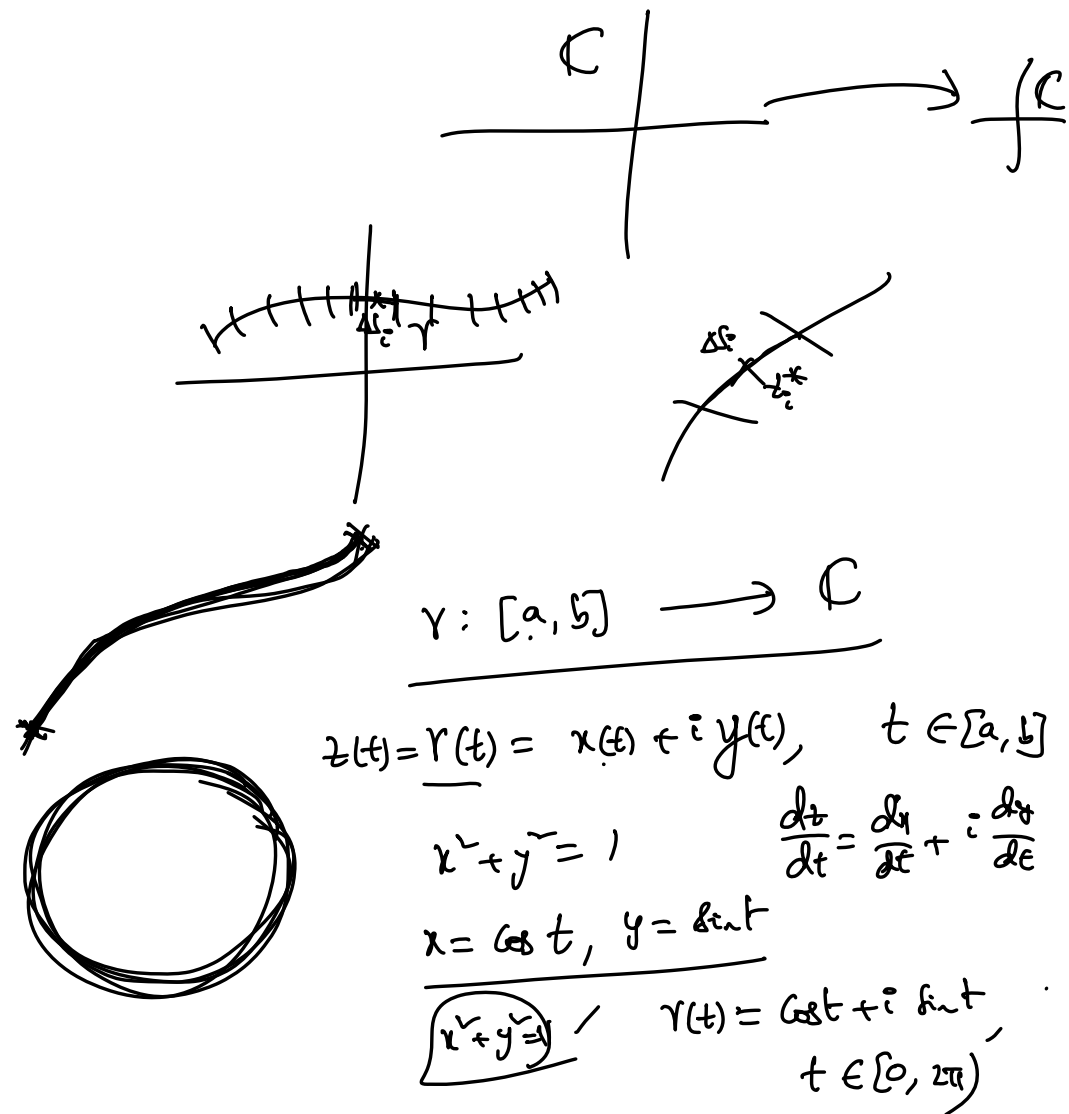 ℂ
ℂ
Δs_i γ
Δs_i
z_i^*
γ : [a, b] ⟶ ℂ
z(t) = γ(t) = x(t) + i y(t), t ∈ [a, b]
x² + y² = 1
dz/dt = dx/dt + i dy/dt
x = cos t, y = sin t
x² + y² = 1
γ(t) = cos t + i sin t,
t ∈ [0, 2π)